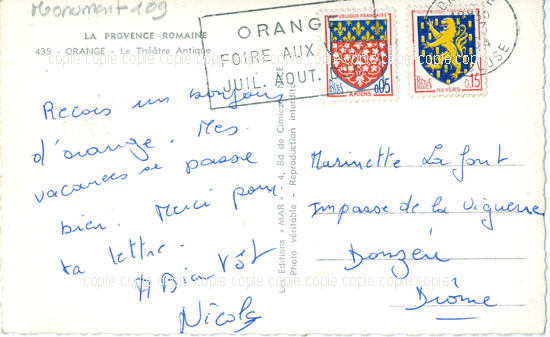 Monument 109
LA PROVENCE ROMAINE
435 - ORANGE - Le Théâtre Antique
ORANGE
FOIRE AUX
JUIL. AOUT.
REPUBLIQUE FRANÇAISE
POSTES 0,05
AMIENS
POSTES 0,15
NEVERS
Reçois un bonjour
d'orange. Mes
vacances se passe
bien. Merci pour
ta lettre.
A Bientôt
Nicole
Les Editions "MAR" - 4, Bd de Cimiez, NICE
Photo véritable - Reproduction interdite
Marinette Lafont
Impasse de la Viguerie
Donzère
Drôme
copie copie copie copie copie copie copie copie